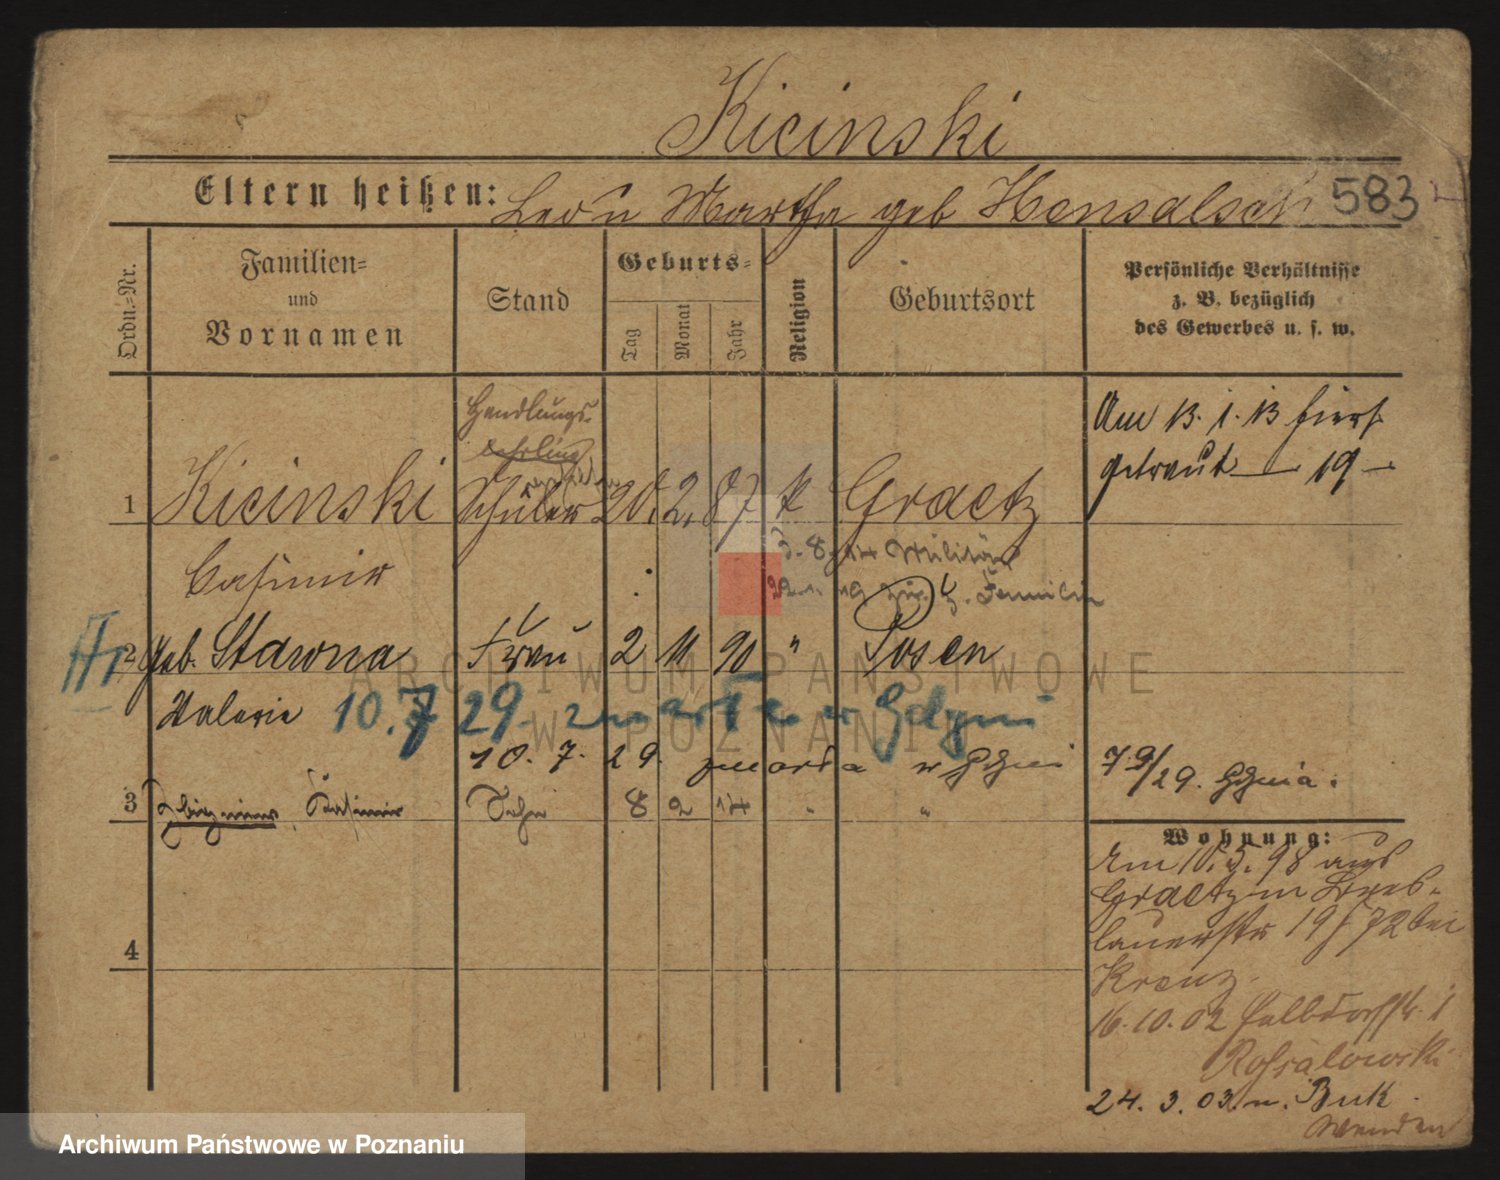 Kicinski
Eltern heißen: Leo u Martha geb Hensalsch 583
Ordn.-Nr.
Familien- und Vornamen
Stand
Geburts-
Tag
Monat
Jahr
Religion
Geburtsort
Persönliche Verhältnisse
z. B. bezüglich
des Gewerbes u. s. w.
Handlungs-
Lehrling
1 Kicinski Schüler 20. 2. 87 k Graetz
Casimir
Am 13. 1. 13 hier
getraut — 19 —
3. 8. 14 Militär
22. 1. 19 zur. z. Familie
2 geb. Stawna Frau 2 11 90 " Posen
Valerie 10. 7 29. zmarła w Gdyni
10. 7. 29. zmarła w Gdyni
79/29. Gdynia.
3 Zbigniew Kasimir Sohn 8 2 14 " "
4
Wohnung:
Am 10. 5. 98 aus
Graetz n Bres-
lauerstr 19 72 bei
Kreuz.
16. 10. 02 Halbdorffstr. 1
24. 3. 03. n. Buk.
Wenden
ARCHIWUM PAŃSTWOWE
W POZNANIU
Archiwum Państwowe w Poznaniu